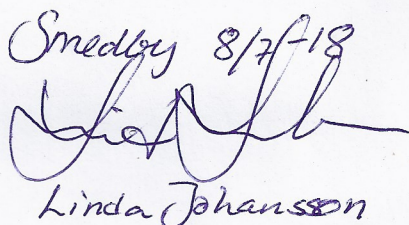 Smedby 8/7-18
Linda Johansson